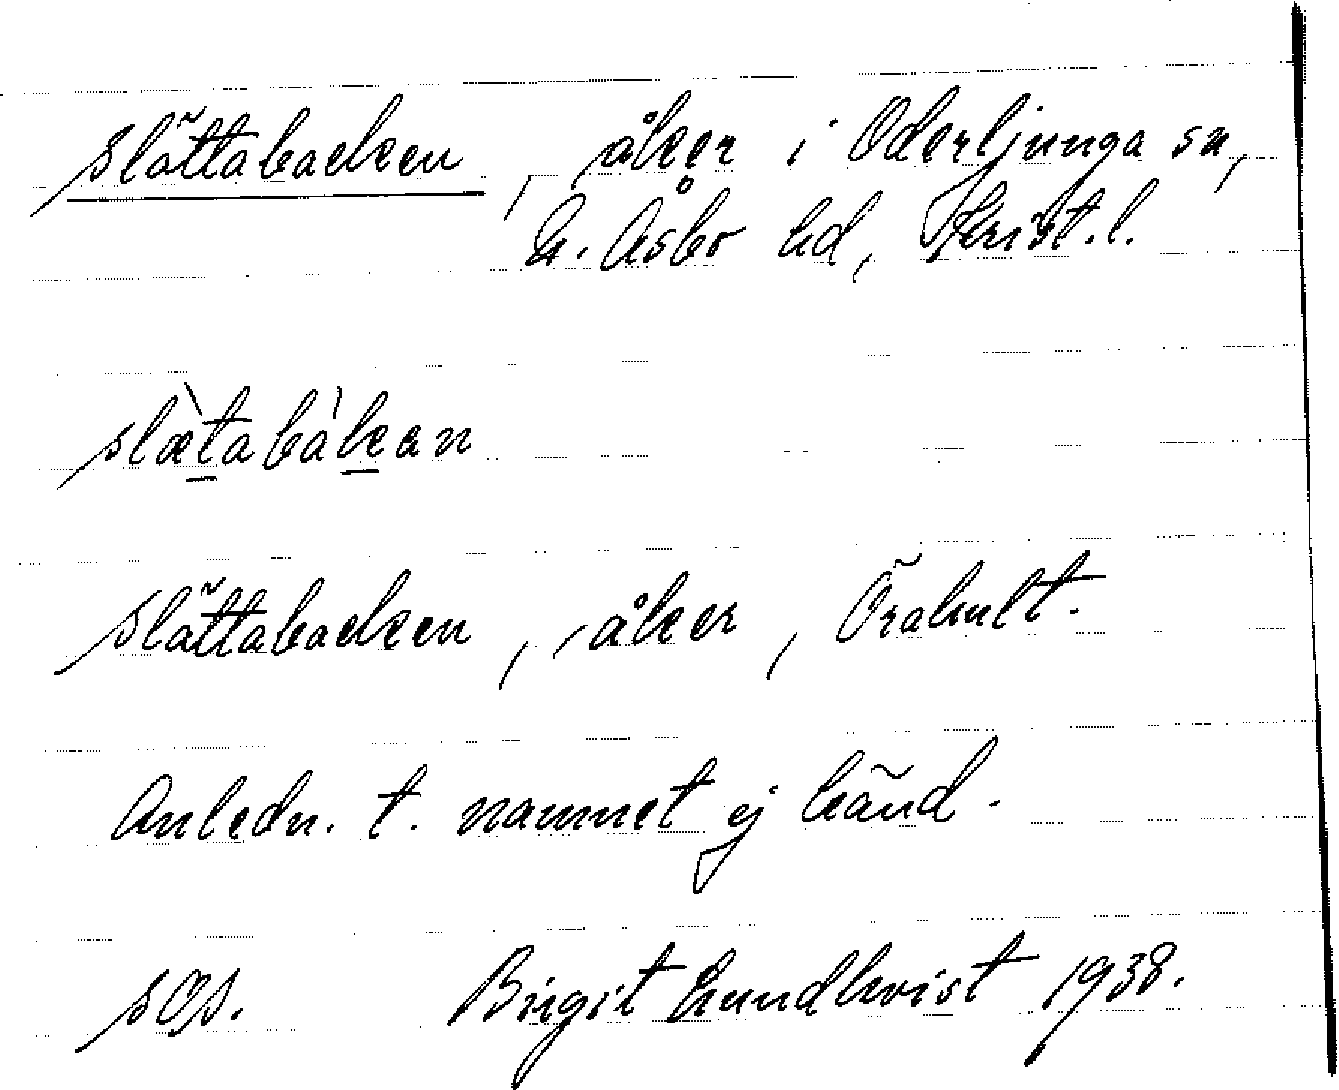 Slättabacken, åker i Oderljunga sn,
N. Åsbo hd, Krist. l.
slætabàkan
Slättabacken, åker, Örahult.
Anledn. t. namnet ej känd.
SOS. Birgit Lundkvist 1938.